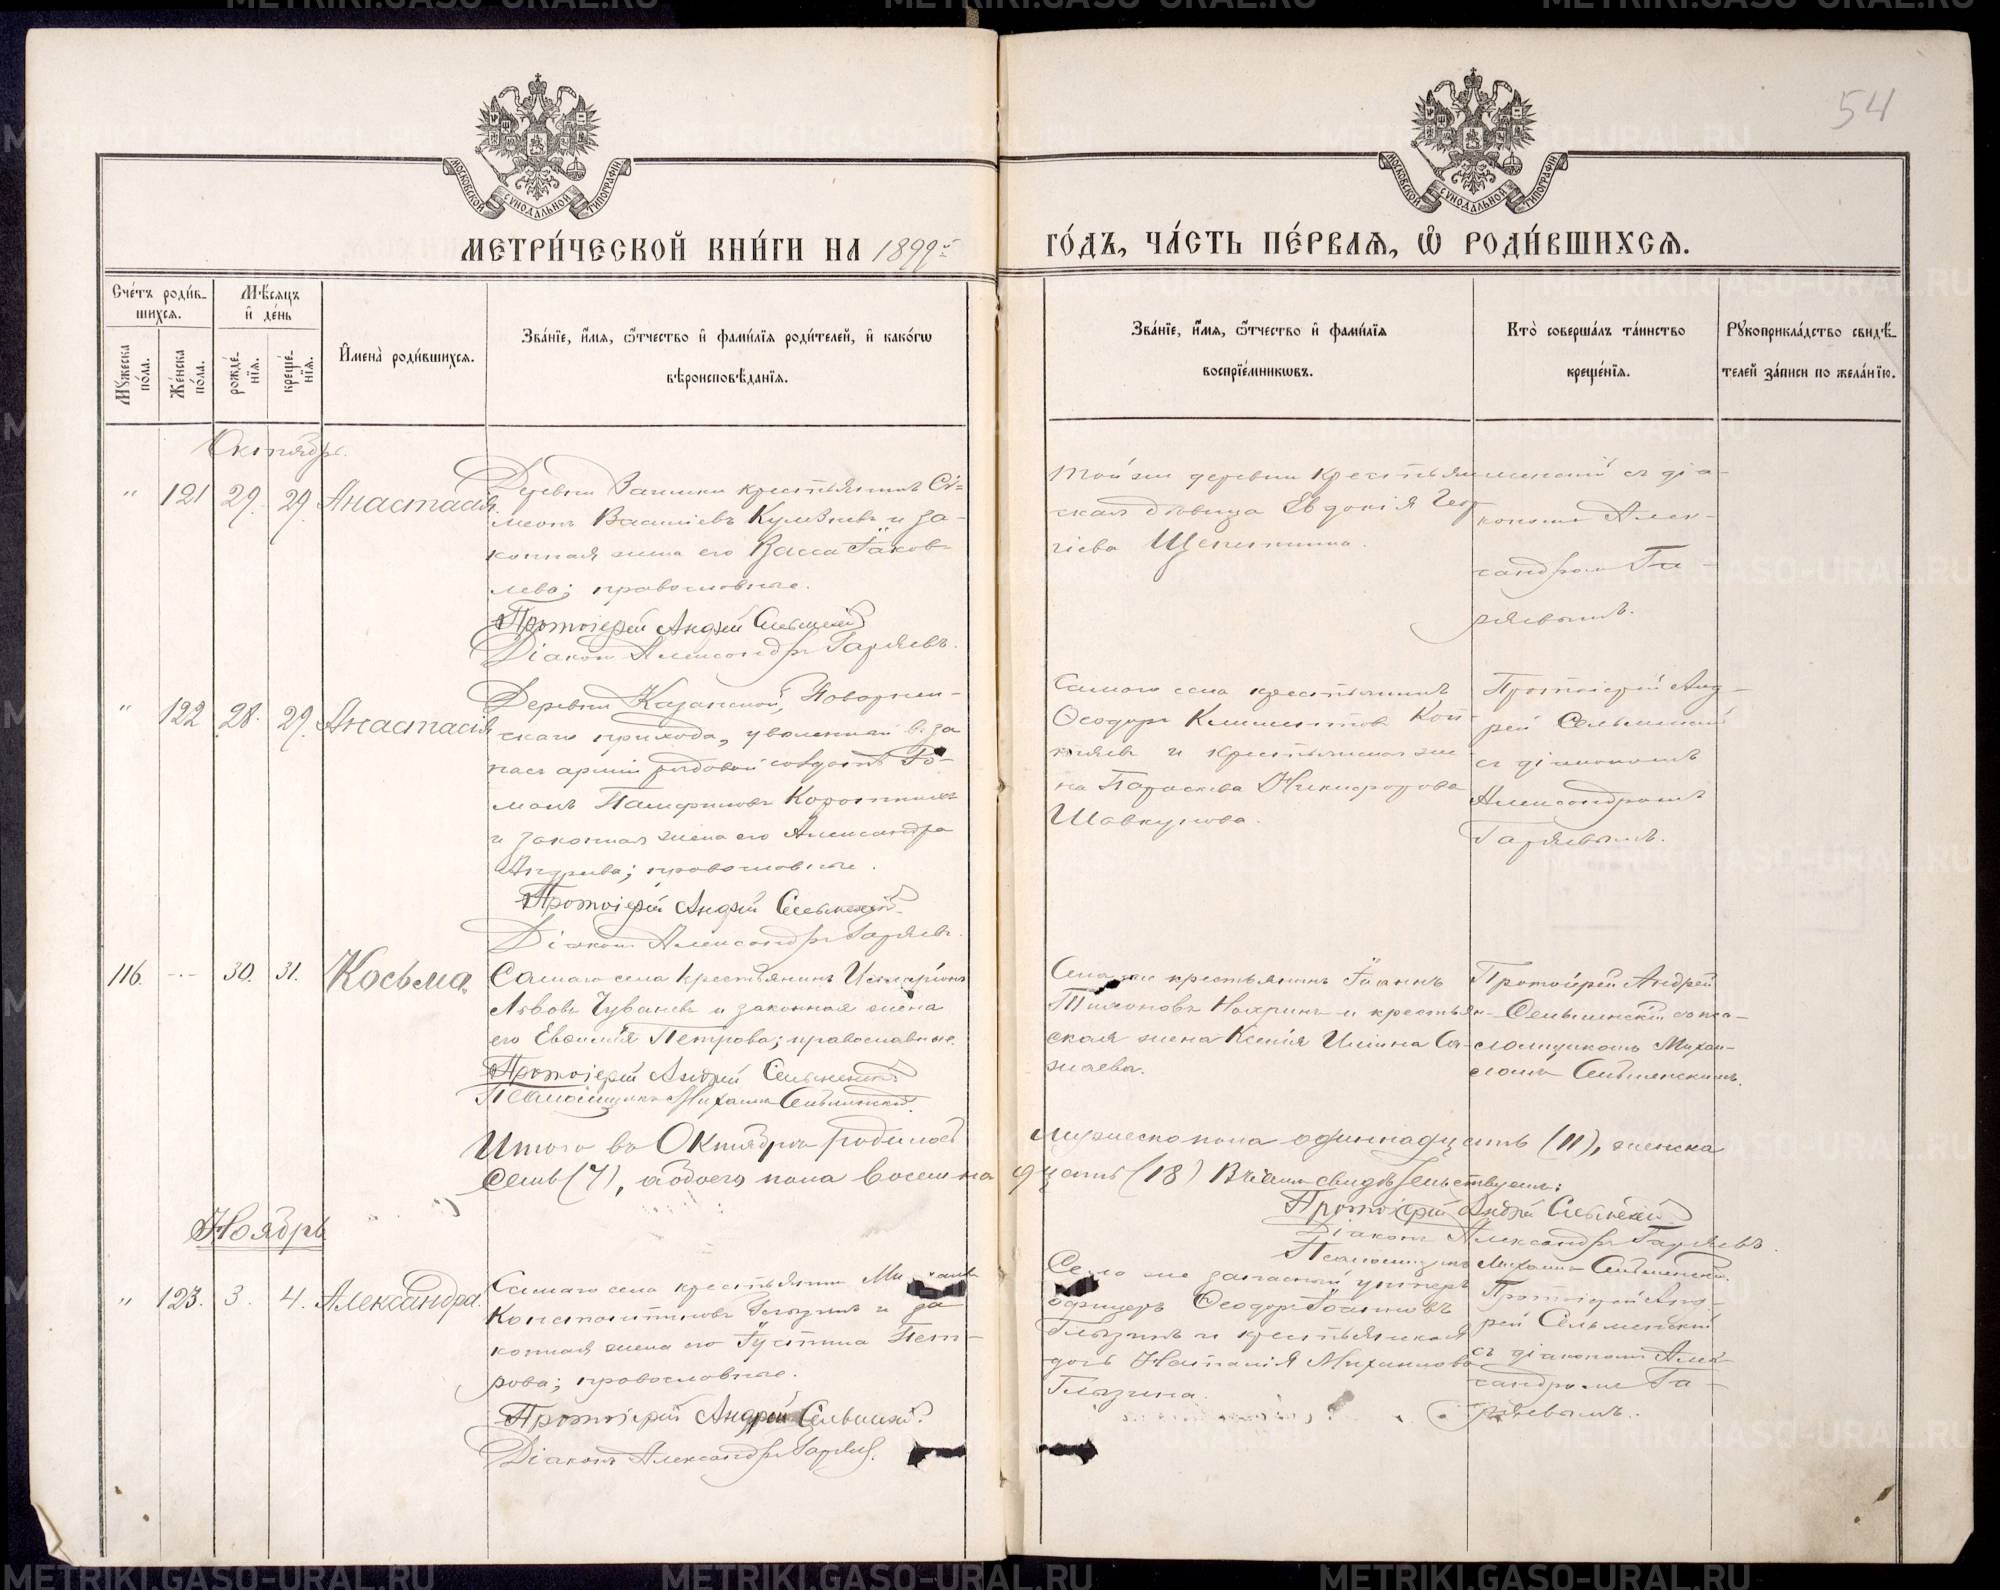 54
МОСКОВСКОЙ СѴНОДАЛЬНОЙ ТИПОГРАФІИ
МОСКОВСКОЙ СѴНОДАЛЬНОЙ ТИПОГРАФІИ
МЕТРИ́ЧЕСКОЙ КНИ́ГИ НА 1899й
ГО́ДЪ, ЧА́СТЬ ПЕ́РВАЯ, Ѡ РОДИ́ВШИХСЯ.
Сче́тъ роди́в-
шихся.
Мѣ́сяцъ
и҆ де́нь
Мꙋ́жеска по́ла.
Же́нска по́ла.
рожде́-нїя.
креще́-нїя.
И҆мена̀ роди́вшихся.
Зва́нїе, и҆́мѧ, ѻ҆́тчество и҆ фами́лїя роди́телей, и҆ како́гѡ
вѣроисповѣ́данїя.
Зва́нїе, и҆́мѧ, ѻ҆́тчество и҆ фами́лїя
воспрїе́мникѡвъ.
Кто̀ соверша́лъ та́инство
креще́нїя.
Рꙋкоприкла́дство свидѣ́-
телей за́писи по жела́нїю.
Октябрь.
" 121 29. 29. Анастасія
Деревни крестьянинъ Си-
меонъ Васильевъ и за-
конная жена его Васса Іаков-
лева; православные.
Протоіерей Андрей Сельменскій
Діаконъ Александръ Гаряевъ.
Той же деревни крестьян
ская дѣвица Евдокія Геор
гіева Щепеткина.
съ діа-
кономъ Алек-
сандромъ Га-
ряевымъ.
" 122 28. 29. Анастасія
Деревни Казанской,
скаго прихода, уволенный въ за
пасъ арміи рядовой солдатъ Ро-
манъ Памфиловъ
и законная жена его Александра
Андреева; православные.
Протоіерей Андрей Сельменскій.
Діаконъ Александръ Гаряевъ.
Самаго села крестьянинъ
Ѳеодоръ Климентовъ
и крестьянская же
на Параскева Никифорова
Шавкунова.
Протоіерей Анд-
рей Сельменскій
съ діакономъ
Александромъ
Гаряевымъ.
116. " 30. 31. Косьма
Самаго села крестьянинъ
Львовъ Чувашевъ и законная жена
его Петрова; православные.
Протоіерей Андрей Сельменскій
Псаломщикъ Михаилъ Сельменскій.
Села же крестьянинъ Іоаннъ
Тихоновъ Нохринъ и крестьян-
ская жена Ксенія Ильина Са-
жаева.
Протоіерей Андрей
Сельменскій со пса-
ломщикомъ Михаи-
ломъ Сельменскимъ.
Итого въ Октябрѣ родилось мужеска пола одиннадцать (11), женска
семь (7), а обоего пола восемнадцать (18) В чемъ свидѣтельствуемъ:
Протоіерей Андрей Сельменскій
Діаконъ Александръ Гаряевъ
Псаломщикъ Михаилъ Сельменскій.
Ноябрь
" 123. 3. 4. Александра.
Самаго села крестьянинъ
Константиновъ Глызинъ и за
конная жена его Іустина Пет-
рова; православные.
Протоіерей Андрей Сельменскій.
Діаконъ Александръ Гаряевъ.
Села же запасный унтеръ
офицеръ Ѳеодоръ Іоанновъ
Глызинъ и крестьянская
дочь Наталія Михаилова
Глызина.
Протоіерей Анд-
рей Сельменскій
съ діакономъ Алек-
сандромъ Га-
ряевымъ.
METRIKI.GASO-URAL.RU